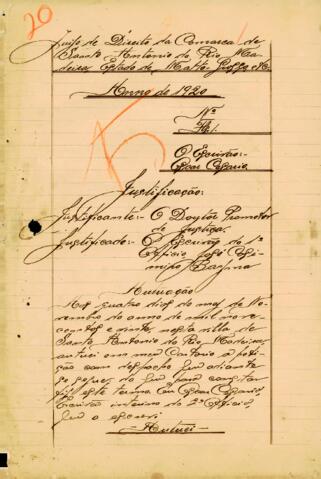 20
Juizo de Direito da Comarca de
Santo Antonio do Rio Ma-
deira Estado de Matto Grosso
Anno de 1920
Nº
Fl.
O Escrivão:-
Cesario
Justificação:
Justificante:- O Doutor Promotor
de Justiça.
Justificado:- O Escrivão do 1º
Officio José
Autuação
Aos quatro dias do mez de No-
vembro do anno de mil nove
centos e vinte nesta villa de
Santo Antonio do Rio Madeira,
autuei em meu Cartorio a peti-
ção com despacho que adiante
se segue, do que para constar
fiz este termo. Eu Cesario,
Escrivão interino do 2º Officio,
que o escrevi
Autuei